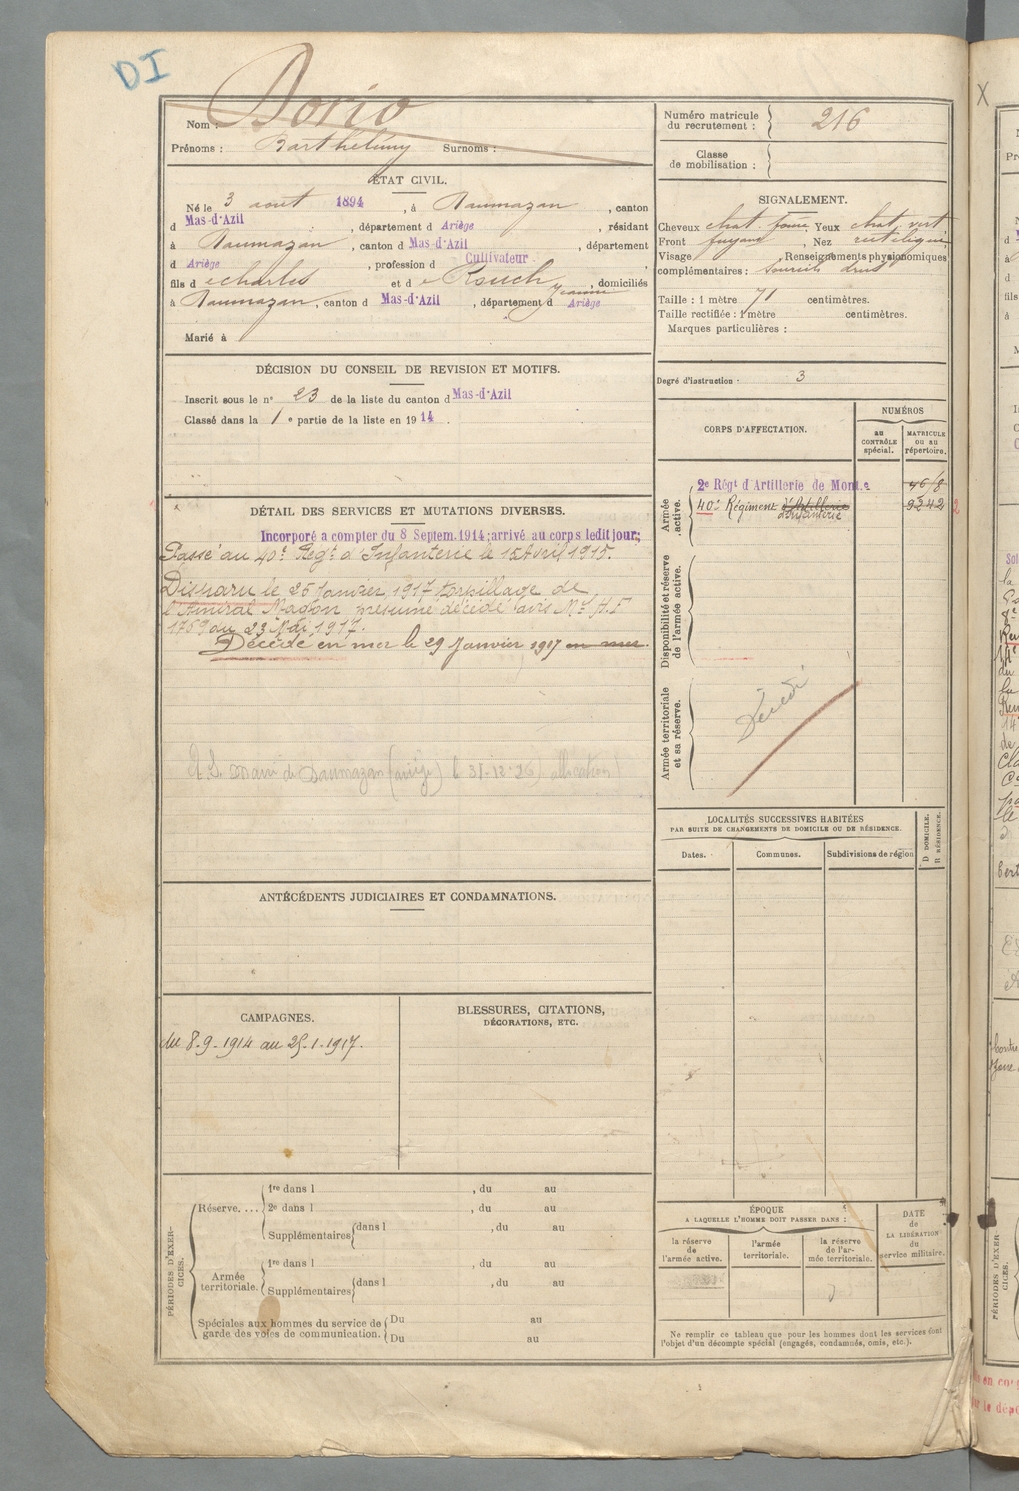 DI
Nom : Dorio
Prénoms : Barthélemy Surnoms :
Numéro matricule du recrutement : 216
Classe de mobilisation :
ÉTAT CIVIL.
Né le 3 aout 1894, à Daumazan, canton
d Mas-d'Azil, département d Ariège, résidant
à Daumazan, canton d Mas-d'Azil, département
d Ariège, profession d Cultivateur
fils d e charles et d e Rouch Jeanne, domiciliés
à Daumazan, canton d Mas-d'Azil, département d Ariège
Marié à
SIGNALEMENT.
Cheveux chat. foncé, Yeux chat. vert
Front fuyant, Nez rect.
Visage , Renseignements physionomiques
complémentaires : sourcils droits
Taille : 1 mètre 71 centimètres.
Taille rectifiée : 1 mètre centimètres.
Marques particulières :
DÉCISION DU CONSEIL DE REVISION ET MOTIFS.
Inscrit sous le n° 23 de la liste du canton d Mas-d'Azil
Classé dans la 1 e partie de la liste en 1914.
Degré d'instruction : 3
CORPS D'AFFECTATION.
NUMÉROS
au CONTRÔLE spécial.
MATRICULE OU AU répertoire.
Armée active.
2e Régt d'Artillerie de Mont.e
40e Régiment d'Artillerie d'Infanterie 9242
2
Disponibilité et réserve de l'armée active.
Armée territoriale et sa réserve.
Décédé
DÉTAIL DES SERVICES ET MUTATIONS DIVERSES.
Incorporé a compter du 8 Septem. 1914; arrivé au corps ledit jour;
Passé au 40e Regt d'Infanterie le 15 Avril 1915.
Disparu le 25 Janvier 1917 torpillage de
l'Amiral Magon présumé décédé avis Mel H.F
1769 du 23 Mai 1917.
Décédé en mer le 29 Janvier 1917 en mer.
Daumazan (ariège) le 31-12-26) allocation)
LOCALITÉS SUCCESSIVES HABITÉES
PAR SUITE DE CHANGEMENTS DE DOMICILE OU DE RÉSIDENCE.
Dates. Communes. Subdivisions de région
D DOMICILE. R RÉSIDENCE.
ANTÉCÉDENTS JUDICIAIRES ET CONDAMNATIONS.
CAMPAGNES.
du 8-9-1914 au 25-1-1917.
BLESSURES, CITATIONS,
DÉCORATIONS, ETC.
PÉRIODES D'EXERCICES.
Réserve....
1re dans l , du au
2e dans l , du au
Supplémentaires dans l , du au
Armée territoriale.
1re dans l , du au
Supplémentaires dans l , du au
Spéciales aux hommes du service de garde des voies de communication.
Du au
Du au
ÉPOQUE
A LAQUELLE L'HOMME DOIT PASSER DANS :
la réserve de l'armée active.
l'armée territoriale.
la réserve de l'armée territoriale.
DATE de LA LIBÉRATION du service militaire.
Ne remplir ce tableau que pour les hommes dont les services font
l'objet d'un décompte spécial (engagés, condamnés, omis, etc.).
X